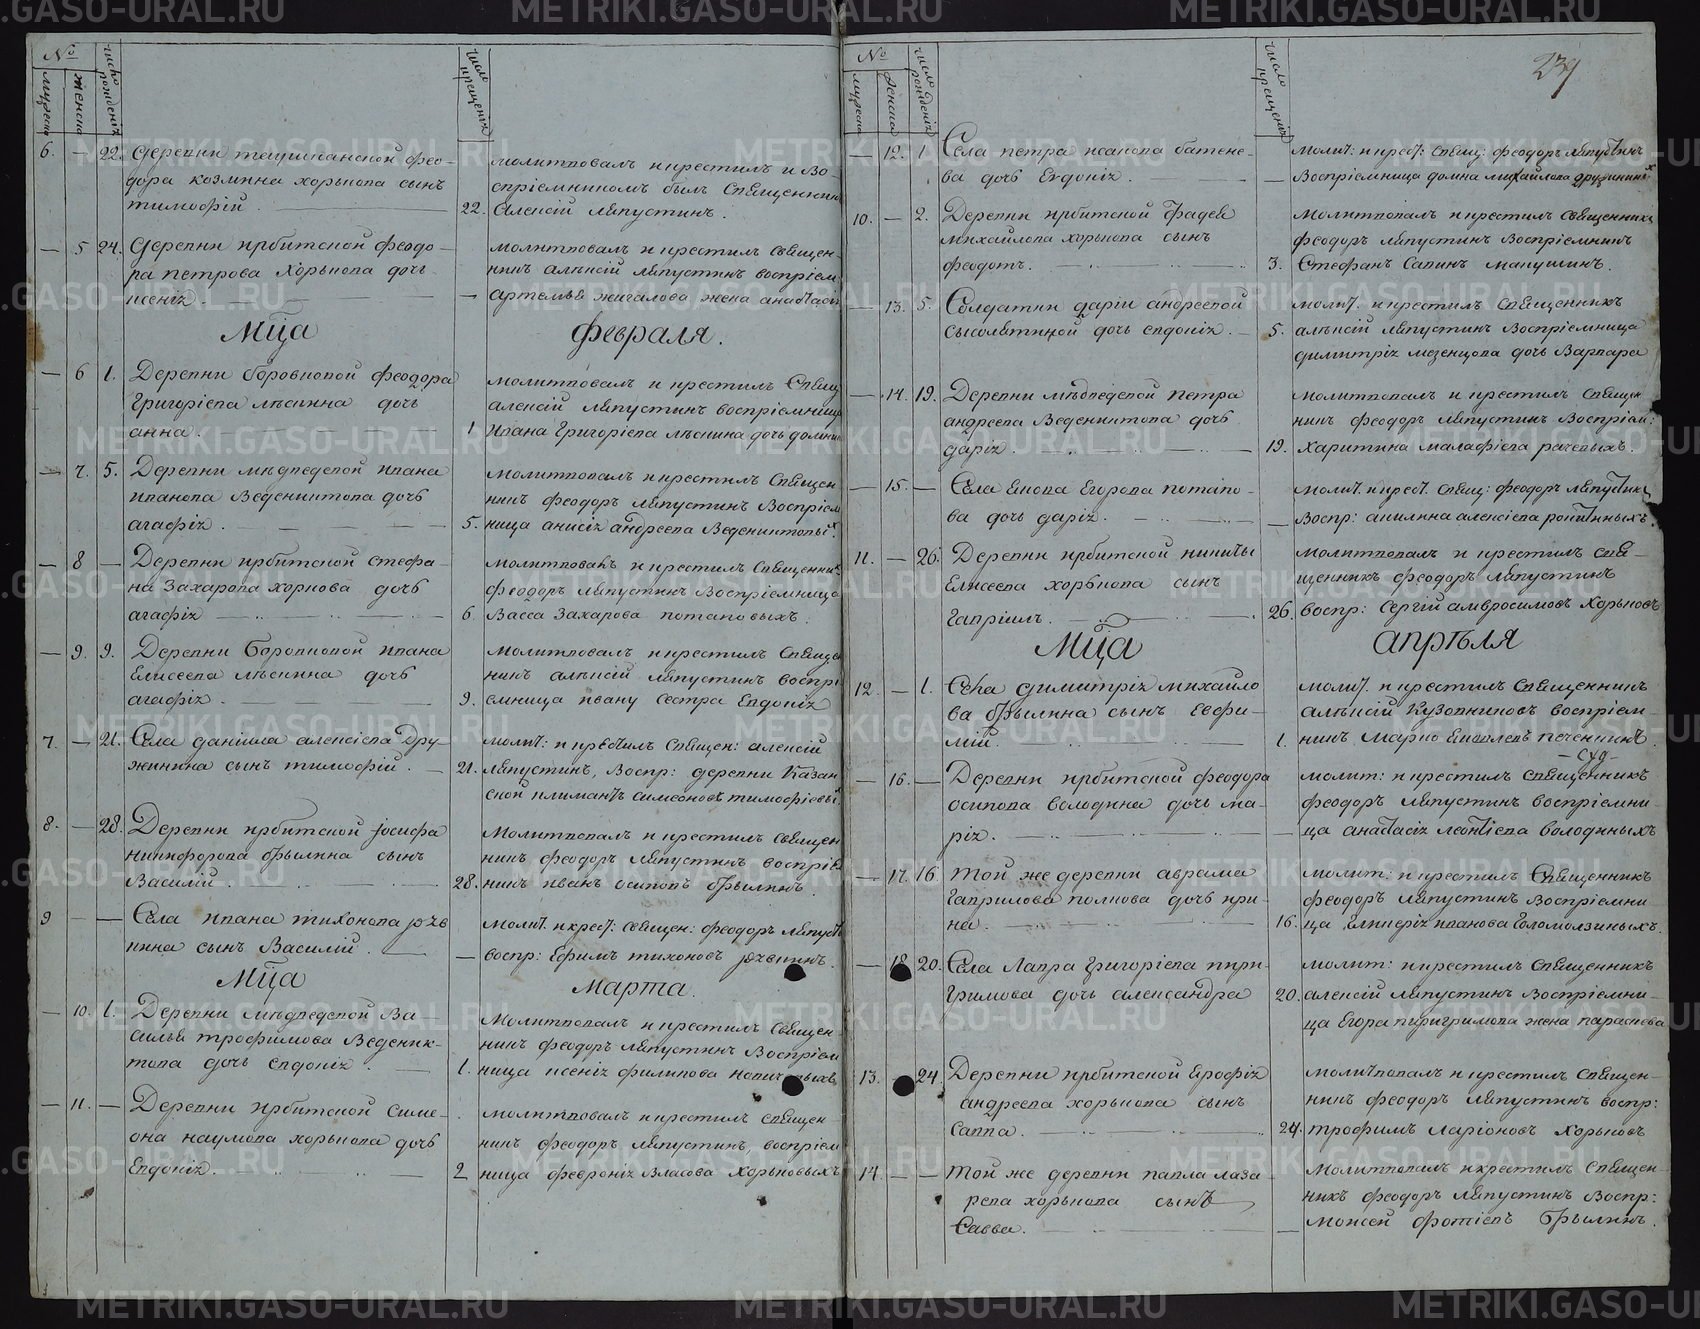 №
мужеска
женска
число рожденія
число крещенія
6. — 22. Деревни теушканской Фео-
дора Козмина Хорькова сынъ
тимофей.
молитвовалъ и крестилъ и во-
спріемникомъ былъ Священникъ
22. Алексій Ляпустинъ.
— 5 24. Деревни ирбитской Феодо-
ра Петрова Хорькова дочь
ксенія.
молитвовалъ и крестилъ Священ-
никъ алексій Ляпустинъ воспріем.
— артемья жигалова жена анастасія
Мц҃а февраля.
— 6 1. Деревни боровковой Феодора
Григоріева лескина дочь
анна.
молитвовалъ и крестилъ Свящ
алексій Ляпустинъ воспріемница
1. Ивана Григоріева лескина дочь домника
— 7. 5. Деревни медведевой ивана
иванова Веденихтова дочь
агафія.
молитвовалъ и крестилъ Священ
никъ Феодоръ Ляпустинъ Воспріем
5. ница анисія андреева Веденихтовых.
— 8 — Деревни ирбитской Стефа-
на Захарова хоркова дочь
агафія
молитвовалъ и крестилъ Священник
Феодоръ Ляпустинъ Воспріемница
6. Васса Захарова потаповыхъ.
— 9. 9. Деревни Боровковой ивана
Елисеева лескина дочь
агафія.
молитвовалъ и крестилъ Священ
никъ алексій Ляпустинъ воспрі
9. емница ивану сестра Евдокія
7. — 21. Села даніила алексіева Дру-
жинина сынъ тимофей.
молит: и крестилъ Священ: алексій
21. Ляпустинъ, Воспр: деревни Казан
ской климантъ симеоновъ тимофіевых
8. — 28. Деревни ирбитской Іосифа
никифорова брылина сынъ
Василій.
Молитвовалъ и крестилъ Священ
никъ Феодоръ Ляпустинъ воспріе
28. никъ иванъ осиповъ брылинъ.
9 — — Села ивана тихонова рѧч
кина сынъ Василій.
молит. и крест: священ: Феодоръ Ляпуст
— воспр: Ефимъ тихоновъ
Мц҃а марта.
— 10. 1. Деревни медведевой Ва-
силья трофимова Веденик-
това дочь евдокія.
Молитвовалъ и крестилъ Священ-
никъ Феодоръ Ляпустинъ Воспріем
1. ница ксенія филипова
— 11. — Деревни ирбитской Симе-
она наумова хорькова дочь
Евдокія.
молитвовалъ и крестилъ Священ-
никъ Феодоръ Ляпустинъ, воспріем
2 ница Февронія Власова Хорьковыхъ
239
№
мужеска
женска
число рожденія
число крещенія
— 12. 1 Села петра исакова батене-
ва дочь Евдокія.
молит: и крест: Свящ: Феодоръ Ляпустинъ
— Воспріемница домна михайлова дружинин
10. — 2. Деревни ирбитской Фадея
михайлова хорькова сынъ
Феодотъ.
молитвовалъ и крестилъ Священникъ
Феодоръ Ляпустинъ Воспріемникъ
3. Стефанъ Савинъ макушинъ.
— 13. 5. Солдатки даріи андреевой
сысолятиной дочь евдокія.
молит. и крестилъ Священникъ
5. алексій Ляпустинъ Воспріемница
димитрія мезенцова дочь Варвара
— 14. 19. Деревни медведевой петра
андреева Веденихтова дочь
дарія.
молитвовалъ и крестилъ Священ
никъ Феодоръ Ляпустинъ Воспріем:
19. Харитина малафіева рачевыхъ.
— 15. — Села Якова Егорова потапо-
ва дочь дарія.
молит. и крест. свящ: Феодоръ Ляпустинъ
— Воспр: акилина алексіева
11. — 26. Деревни ирбитской никиты
Елисеева хорькова сынъ
Гавріилъ.
молитвовалъ и крестилъ свя-
щенникъ Феодоръ Ляпустинъ
26. воспр: Сергій амвросимовъ Хорьковъ
Мц҃а апреля
12. — 1. Села димитрія михайло
ва брылина сынъ евфи-
мій.
молит. и крестилъ Священникъ
алексій Кузовниковъ воспріем-
1. никъ Марко Яковлевъ печенкинъ.
— 16. — Деревни ирбитской Феодора
осипова володина дочь ма-
рія.
молит: и крестилъ Священникъ
Феодоръ Ляпустинъ воспріемни-
— ца анастасія леонтіева володиныхъ
— 17. 16. той же деревни аврама
Гаврилова волкова дочь ири-
на.
молит: и крестилъ Священникъ
Феодоръ Ляпустинъ Воспріемни-
16. ца Гликерія иванова Голомолзиныхъ.
— 18 20. Села Лавра Григоріева пири-
гримова дочь александра
молит: и крестилъ Священникъ
20. алексій Ляпустинъ Воспріемни-
ца Егора пиригримова жена параскева
13. — 24. Деревни ирбитской Ерофія
андреева хорькова сынъ
Савва.
молитвовалъ и крестилъ Священ-
никъ Феодоръ Ляпустинъ воспр:
24. трофимъ Ларіоновъ Хорьковъ
14. — — той же деревни павла лаза-
рева хорькова сынъ
Савва.
Молитвовалъ и крестилъ Священ-
никъ Феодоръ Ляпустинъ Воспр:
— моисей Фотіевъ брылинъ.
METRIKI.GASO-URAL.RU